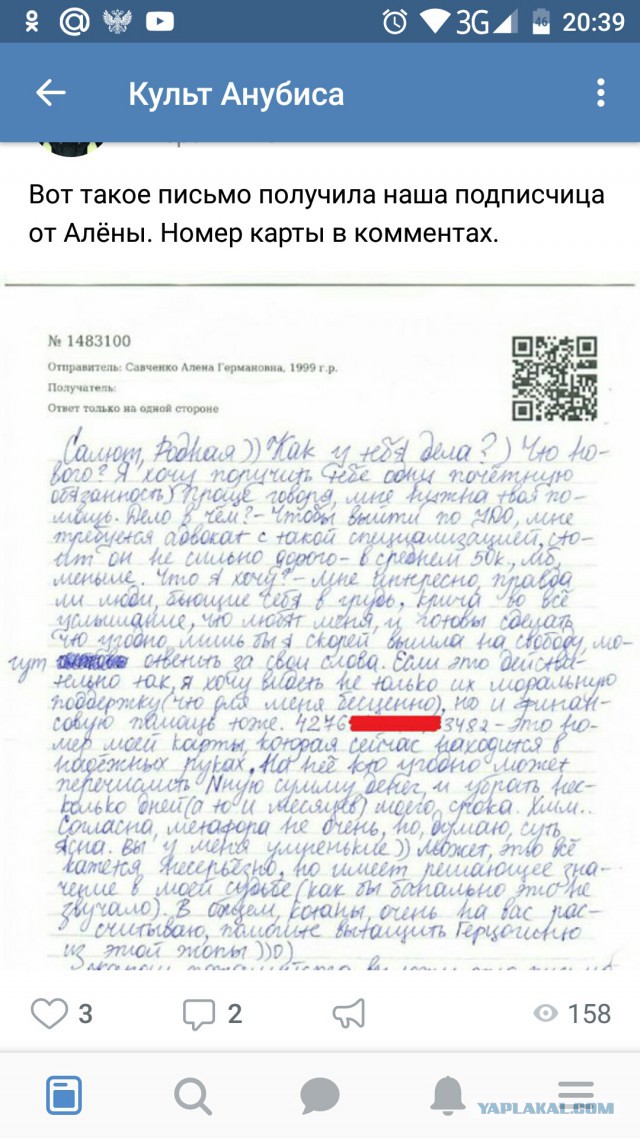 46
3G
20:39
Культ Анубиса
Вот такое письмо получила наша подписчица
от Алёны. Номер карты в комментах.
№ 1483100
Отправитель: Савченко Алена Германовна, 1999 г.р.
Получатель:
Ответ только на одной стороне
Салют, Родная)) Как у тебя дела?) Что но-
вого? Я хочу поручить тебе одну почётную
обязанность) Проще говоря, мне нужна твоя по-
мощь. Дело в чём? - Чтобы выйти по УДО, мне
требуется адвокат с такой специализацией, сто-
ит он не сильно дорого - в среднем 50к., мб
меньше. Что я хочу? - Мне интересно, правда
ли люди, бьющие себя в грудь, крича во всё
услышание, что любят меня, и готовы сделать
что угодно, лишь бы я скорей вышла на свободу, мо-
гут ответить за свои слова. Если это действи-
тельно так, я хочу видеть не только их моральную
поддержку (что для меня бесценно), но и финан-
совую помощь тоже. 4276 3482 - это но-
мер моей карты, которая сейчас находится в
надёжных руках. На неё кто угодно может
перечислить Nную сумму денег, и убрать нес-
колько дней (а то и месяцев) моего срока. Хмм..
Согласна, метафора не очень, но, думаю, суть
ясна. Вы у меня умненькие)) Может, это всё
кажется несерьёзно, но имеет решающее зна-
чение в моей судьбе (как бы банально это не
звучало). В общем, котаны, очень на вас рас-
считываю, помогите вытащить Герцогиню
из этой жопы ))0)
3
2
158
YAPLAKAL.COM